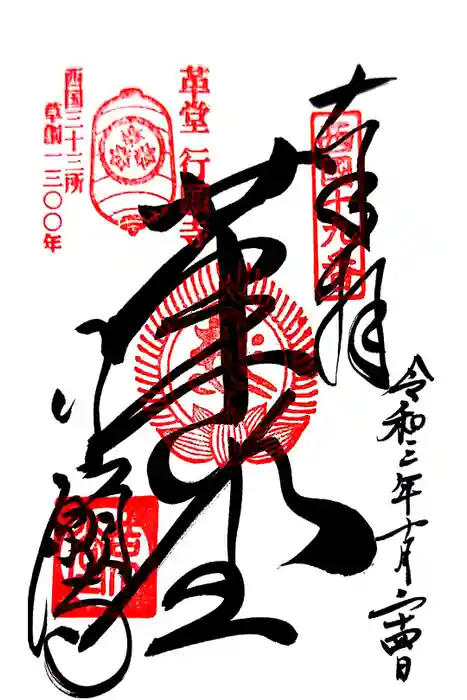 奉拝
西国十九番
令和二年十月二十四日
革堂
革堂 行願寺
西国三十三所
草創一三〇〇年
行願寺